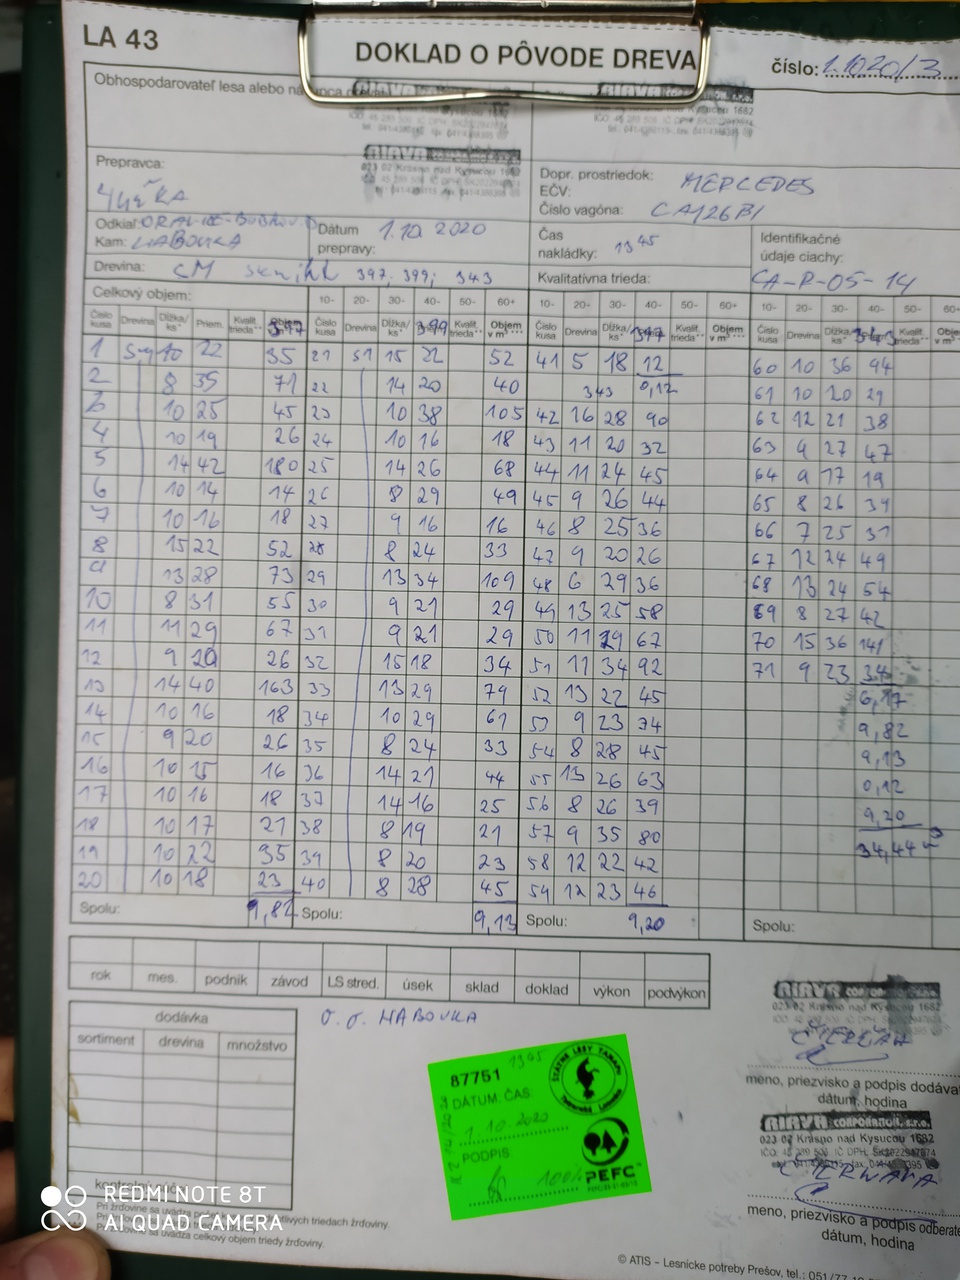 LA 43
DOKLAD O PÔVODE DREVA
číslo: 1.1020/3
Obhospodarovateľ lesa alebo
Prepravca:
Dopr. prostriedok: MERCEDES
EČV:
Číslo vagóna: CA126BI
Odkiaľ:
Kam: HABOVKA
Dátum prepravy: 1.10 2020
Čas nakládky: 13 45
Identifikačné údaje ciachy:
CA-P-05-14
Drevina: 397, 399, 343
Kvalitatívna trieda:
Celkový objem:
10- 20- 30- 40- 50- 60+ 10- 20- 30- 40- 50- 60+ 10- 20- 30- 40- 50- 60+
Číslo kusa Drevina Dĺžka/ks* Priem. Kvalit. trieda** 397 Číslo kusa Drevina Dĺžka/ks* 399 Kvalit. trieda** Objem v m³*** Číslo kusa Drevina Dĺžka/ks* 397 Kvalit. trieda** Objem v m³*** Číslo kusa Drevina Dĺžka/ks* 343 Kvalit. trieda** Objem v m³
1 10 22 35 21 15 22 52 41 5 18 12 60 10 36 94
2 8 35 71 22 14 20 40 343 0,12 61 10 20 29
3 10 25 45 23 10 38 105 42 16 28 90 62 12 21 38
4 10 19 26 24 10 16 18 43 11 20 32 63 9 27 47
5 14 42 180 25 14 26 68 44 11 24 45 64 9 17 19
6 10 14 14 26 8 29 49 45 9 26 44 65 8 26 39
7 10 16 18 27 9 16 16 46 8 25 36 66 7 25 31
8 15 22 52 28 8 24 33 47 9 20 26 67 12 24 49
9 13 28 73 29 13 34 109 48 6 29 36 68 13 24 54
10 8 31 55 30 9 21 29 49 13 25 58 69 8 27 42
11 11 29 67 31 9 21 29 50 11 29 67 70 15 36 141
12 9 20 26 32 15 18 34 51 11 34 92 71 9 23 34
13 14 40 163 33 13 29 79 52 13 22 45 6,17
14 10 16 18 34 10 29 61 53 9 23 34 9,82
15 9 20 26 35 8 24 33 54 8 28 45 9,13
16 10 15 16 36 14 21 44 55 13 26 63 0,12
17 10 16 18 37 14 16 25 56 8 26 39 9,20
18 10 17 21 38 8 19 21 57 9 35 80 34,44
19 10 22 35 39 8 20 23 58 12 22 42
20 10 18 23 40 8 28 45 59 12 23 46
Spolu: 9,82 Spolu: 9,13 Spolu: 9,20 Spolu:
rok mes. podnik závod LS stred. úsek sklad doklad výkon podvýkon
dodávka
sortiment drevina množstvo
O. O. HABOVKA
87751
13 45
DÁTUM: ČAS:
1.10.2020
PODPIS
100%
ŠTÁTNE LESY TANAPU
PEFC
AIRVA CORPORATION
023 02 Krásno nad Kysucou 1682
meno, priezvisko a podpis
dátum, hodina
AIRVA CORPORATION, s.r.o.
023 02 Krásno nad Kysucou 1682
meno, priezvisko a podpis
dátum, hodina
Pri žrďovine sa uvádza
triedach žrďoviny.
sa uvádza celkový objem triedy žrďoviny.
© ATIS – Lesnícke potreby Prešov, tel.: 051/77
REDMI NOTE 8T
AI QUAD CAMERA